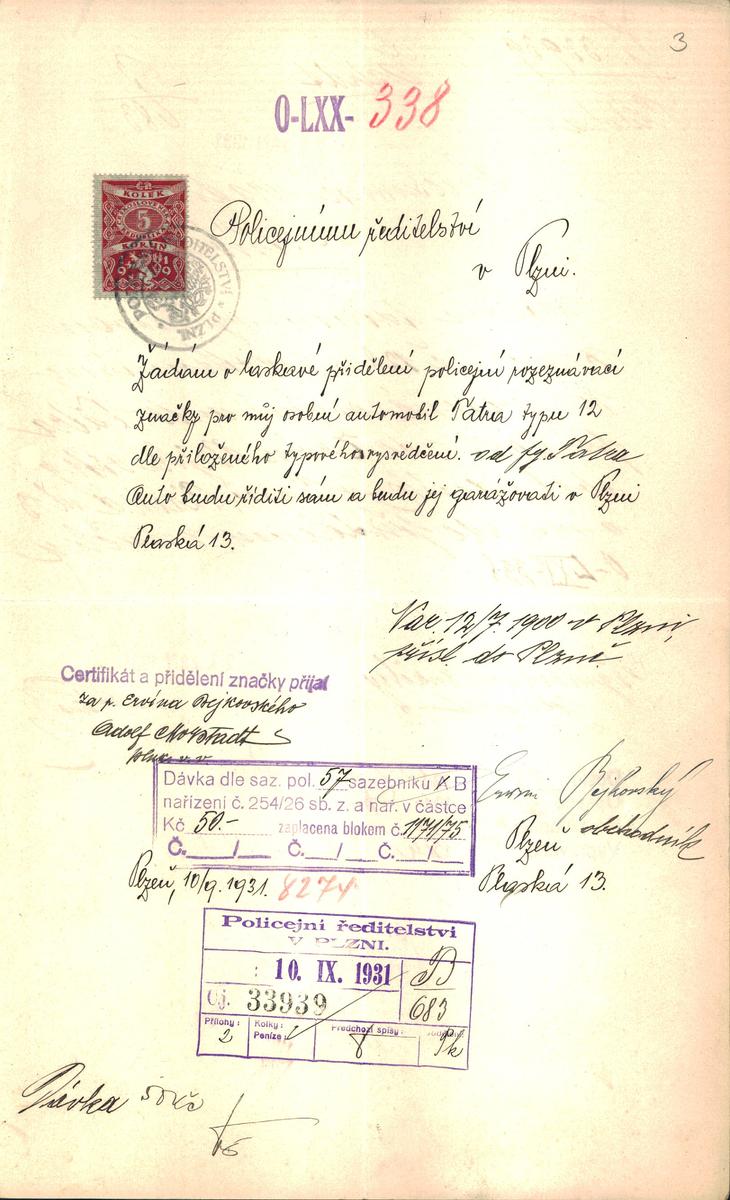 3
O-LXX- 338
KOLEK
5
KORUN
1919
POLICEJNÍ ŘEDITELSTVÍ v PLZNI
Policejnímu ředitelství
v Plzni.
Žádám o laskavé přidělení policejní rozeznávací
značky pro můj osobní automobil Tatra typu 12
dle přiloženého typového vysvědčení. od fy. Tatra
Auto budu říditi sám a budu jej garážovati v Plzni
Plaská 13.
Nar 12/7. 1900 v Plzni,
přísl. do Plzně.
Certifikát a přidělení značky přijal
za p. Ervína Bejkovského
Adolf
Dávka dle saz. pol. 57 sazebníku A B
nařízení č. 254/26 sb. z. a nař. v částce
Kč 50.- zaplacena blokem č. 1171/75
Č.___/__ Č.___/__ Č.___/__
Erwin Bejkovský
obchodník
Plzeň
Plaská 13.
Plzeň, 10/9. 1931. 8274
Policejní ředitelství
V PLZNI.
10. IX. 1931
Čj. 33939
D
683
Přílohy: 2
Kolky: 1
Peníze:
Předchozí spisy: 8
Pk
Dávka 50 Kč